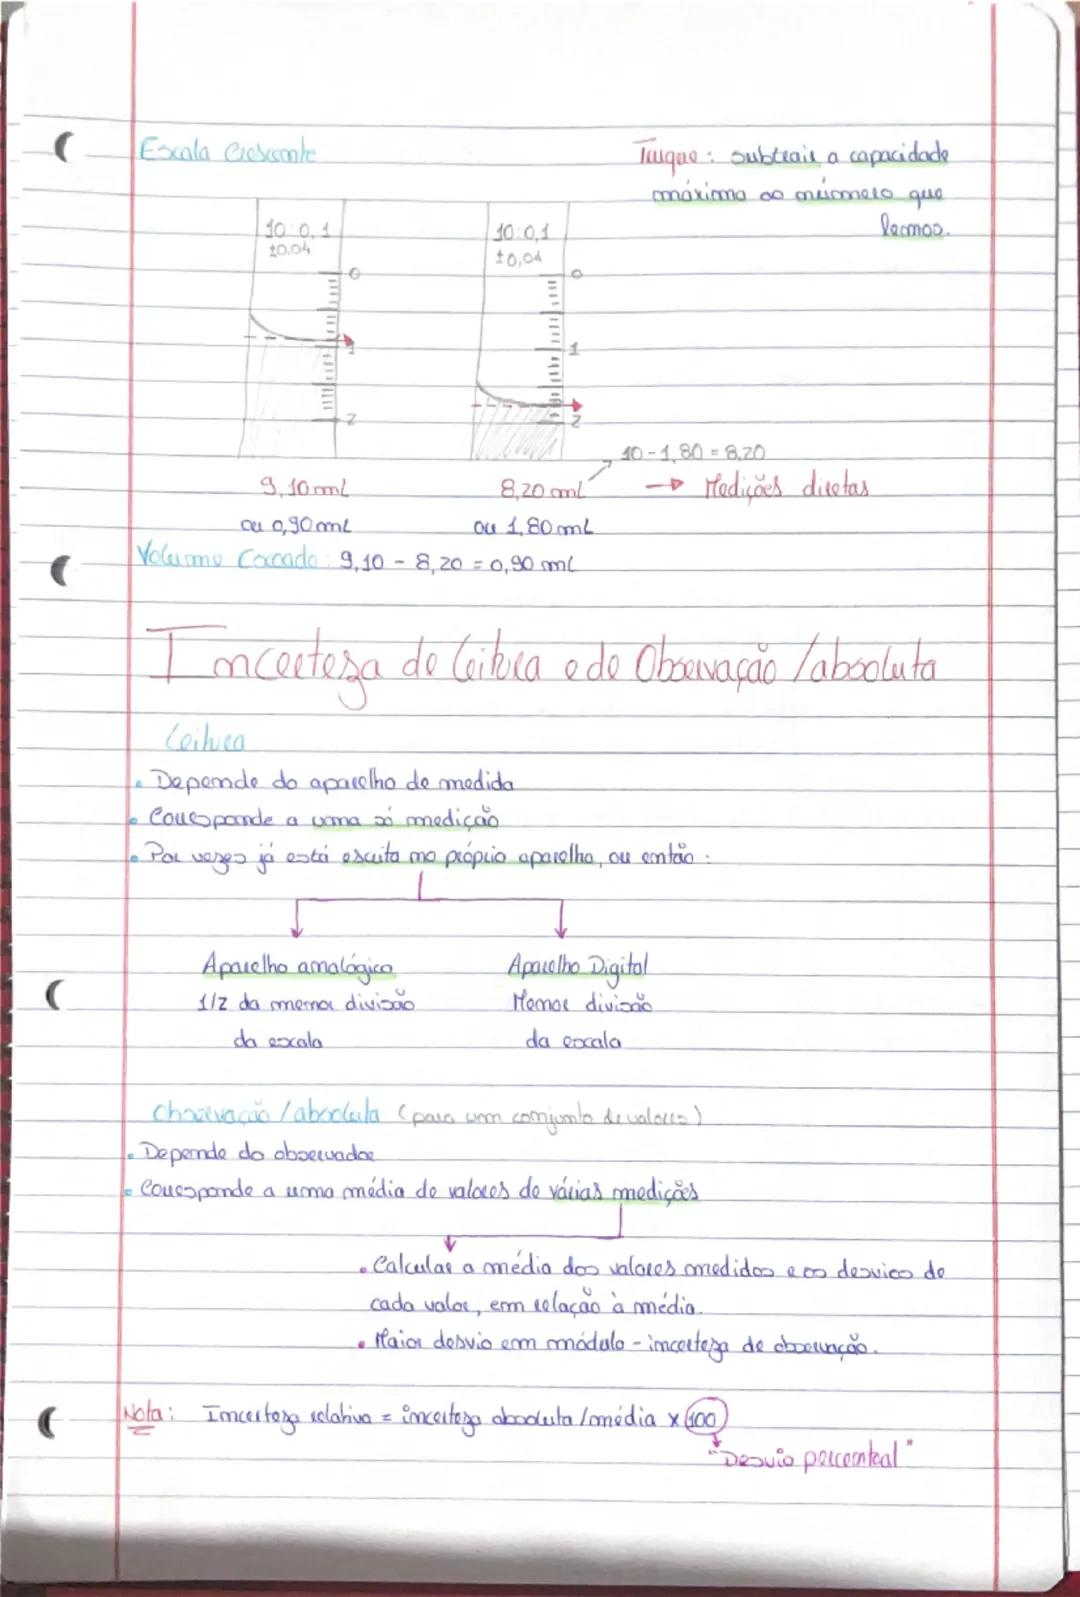 Escala Crescente
Truque: subtrair a capacidade
máxima ao número que
lermos.
10:0,1
±0.04
0
1
2
10:0,1
±0,04
0
1
2
10-1,80=8,20
9,10 mL
8,20 mL → Medições diretas
ou 0,90 mL
ou 1,80 mL
Volume Vazado: 9,10 - 8,20 = 0,90 mL
Incerteza de leitura e de Observação/absoluta
Leitura
• Depende do aparelho de medida
• Corresponde a uma só medição
• Por vezes já está escrita no próprio aparelho, ou então:
Aparelho analógico
1/2 da menor divisão
da escala
Aparelho Digital
Menor divisão
da escala
Observação/absoluta (para um conjunto de valores)
• Depende do observador
• Corresponde a uma média de valores de várias medições
• Calcular a média dos valores medidos e os desvios de
cada valor, em relação à média.
• Maior desvio em módulo - incerteza de observação.
Nota: Incerteza relativa = incerteza absoluta/média x 100
"Desvio percentual"